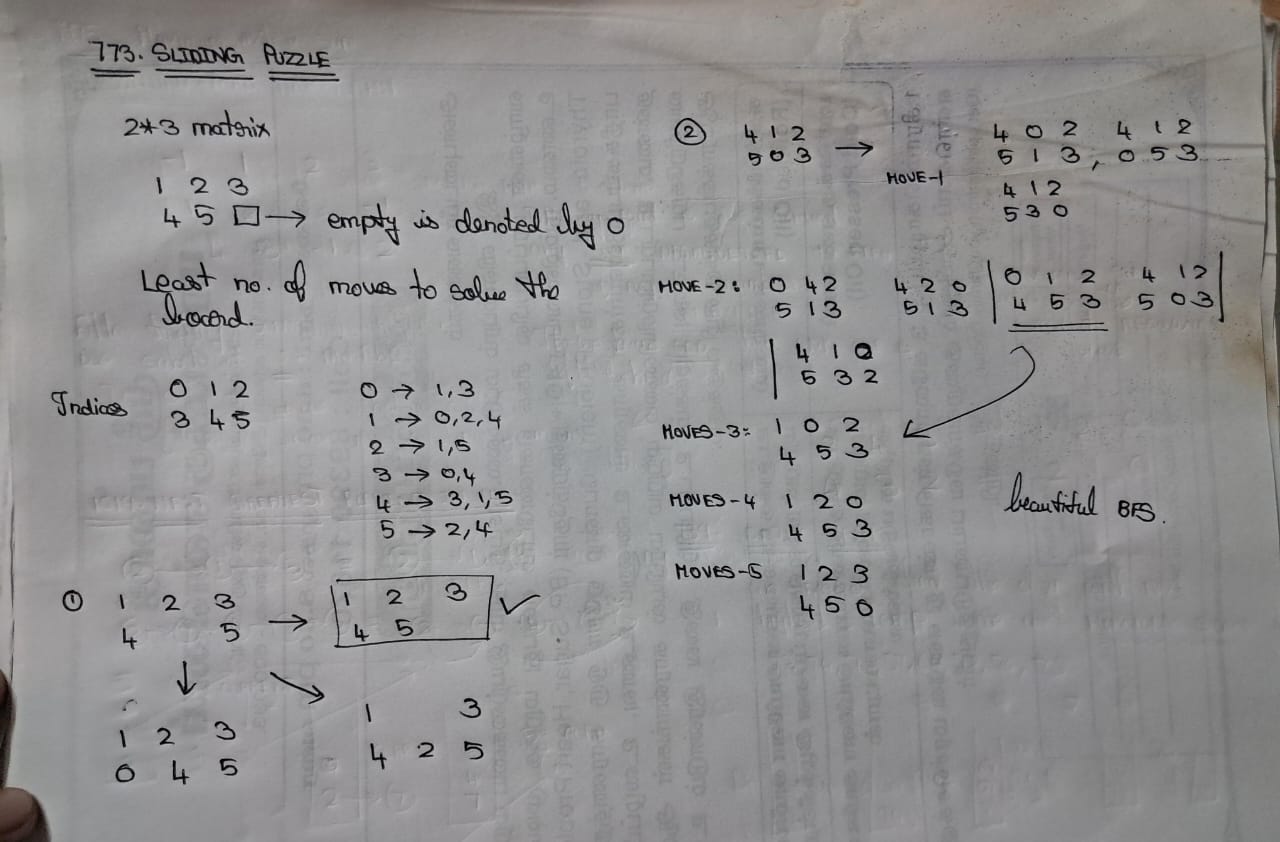 773. SLIDING PUZZLE
2*3 matrix
1 2 3
4 5 □ → empty is denoted by 0
Least no. of moves to solve the
board.
Indices
0 1 2
3 4 5
0 → 1,3
1 → 0,2,4
2 → 1,5
3 → 0,4
4 → 3,1,5
5 → 2,4
① 1 2 3 → 1 2 3 ✓
4 5 4 5
↓
1 2 3
0 4 5
1 3
4 2 5
② 4 1 2 → 4 0 2 4 1 2
5 0 3 5 1 3 , 0 5 3
MOVE-1
4 1 2
5 3 0
MOVE-2: 0 4 2 4 2 0 | 0 1 2 4 1 2 |
5 1 3 5 1 3 | 4 5 3 5 0 3 |
| 4 1 0
5 3 2
MOVES-3: 1 0 2
4 5 3
MOVES-4 1 2 0
4 5 3
MOVES-5 1 2 3
4 5 0
beautiful BFS.